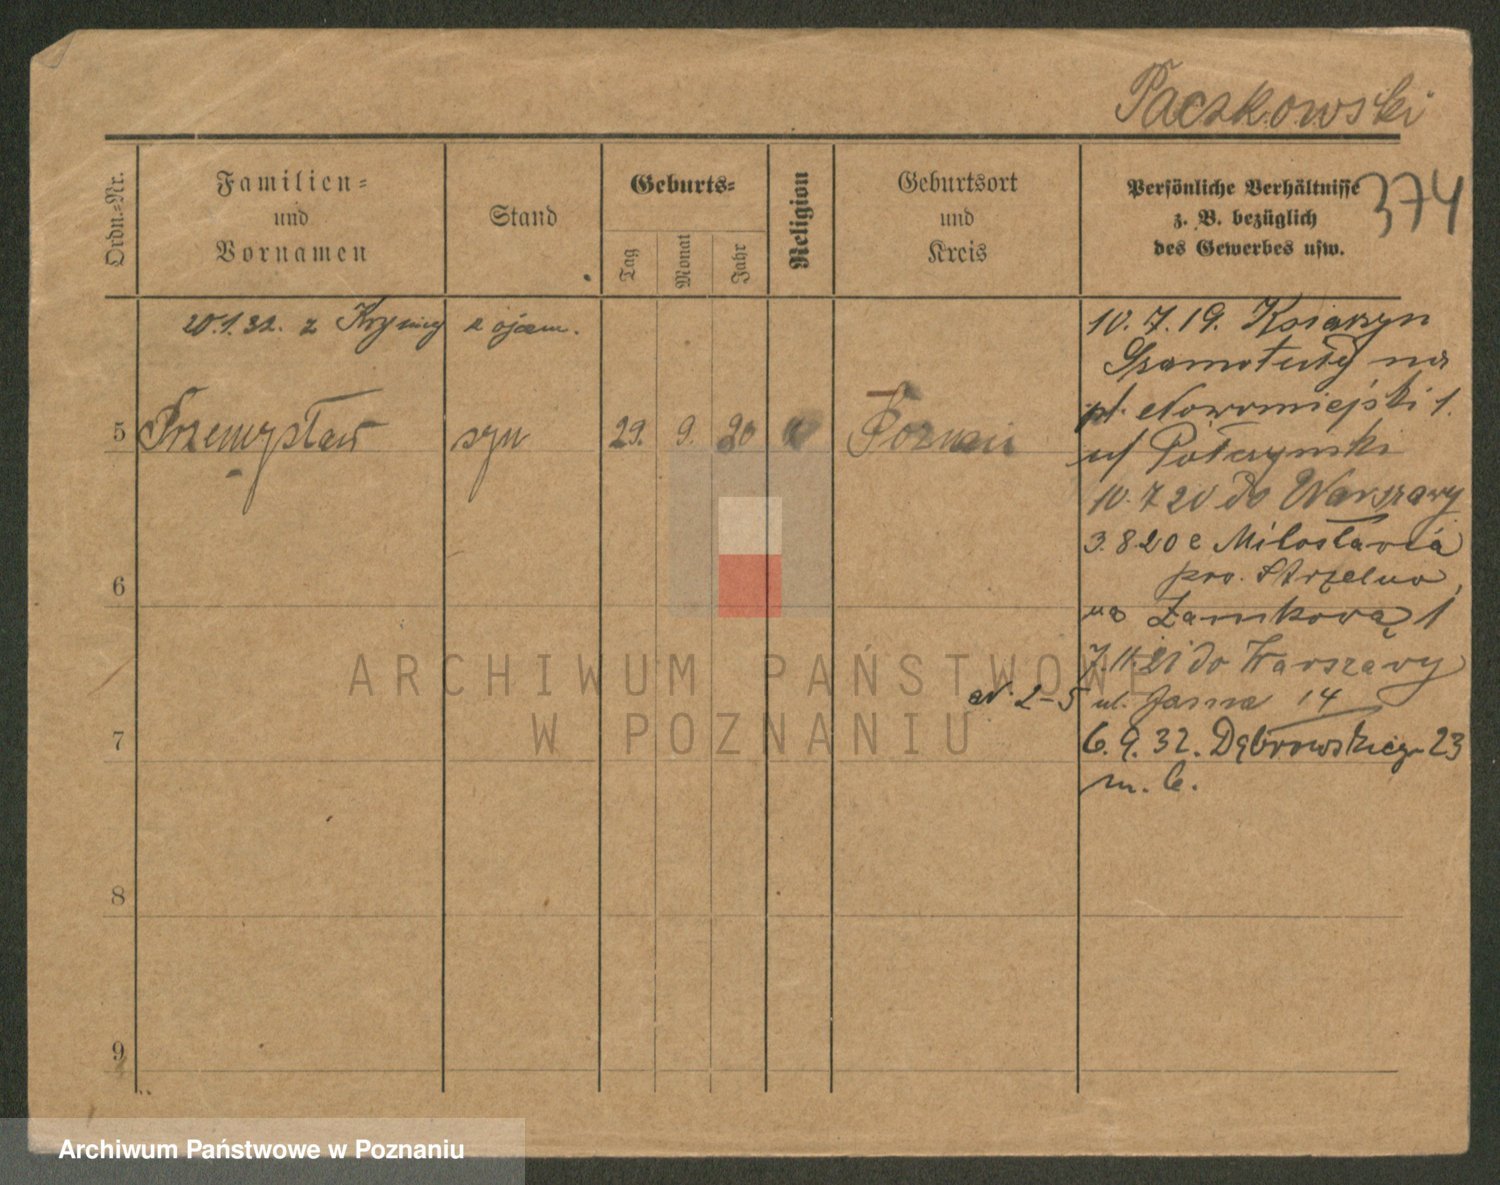 Paczkowski
374
Ordn.-Nr.
Familien-
und
Vornamen
Stand
Geburts-
Tag
Monat
Jahr
Religion
Geburtsort
und
Kreis
Persönliche Verhältnisse
z. B. bezüglich
des Gewerbes usw.
20.1.32. z Krynicy z ojcem.
5 Przemysław syn 29. 9. 20 Poznań
6
7
8
9
10.7.19. Książyn
Szamotuły na
pl. Nowomiejski 1.
10.7 20 do Warszawy
3.8 20 Miłosławia
pow. Strzelno,
na Zamkową 1
do Warszawy
2-5 ul. Jasna 14
6.9.32. Dąbrowskiego 23
m. 6.
ARCHIWUM PAŃSTWOWE
W POZNANIU
Archiwum Państwowe w Poznaniu